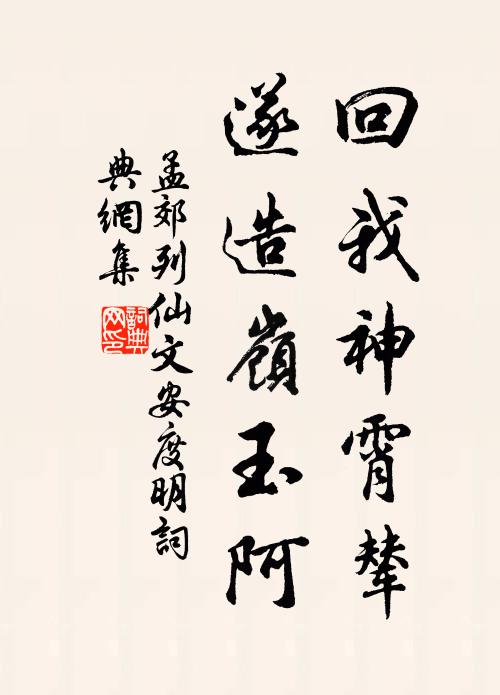 回我神霄輦
遂造嶺玉阿
孟郊列仙文安度明詞
典網集
詞典
网印